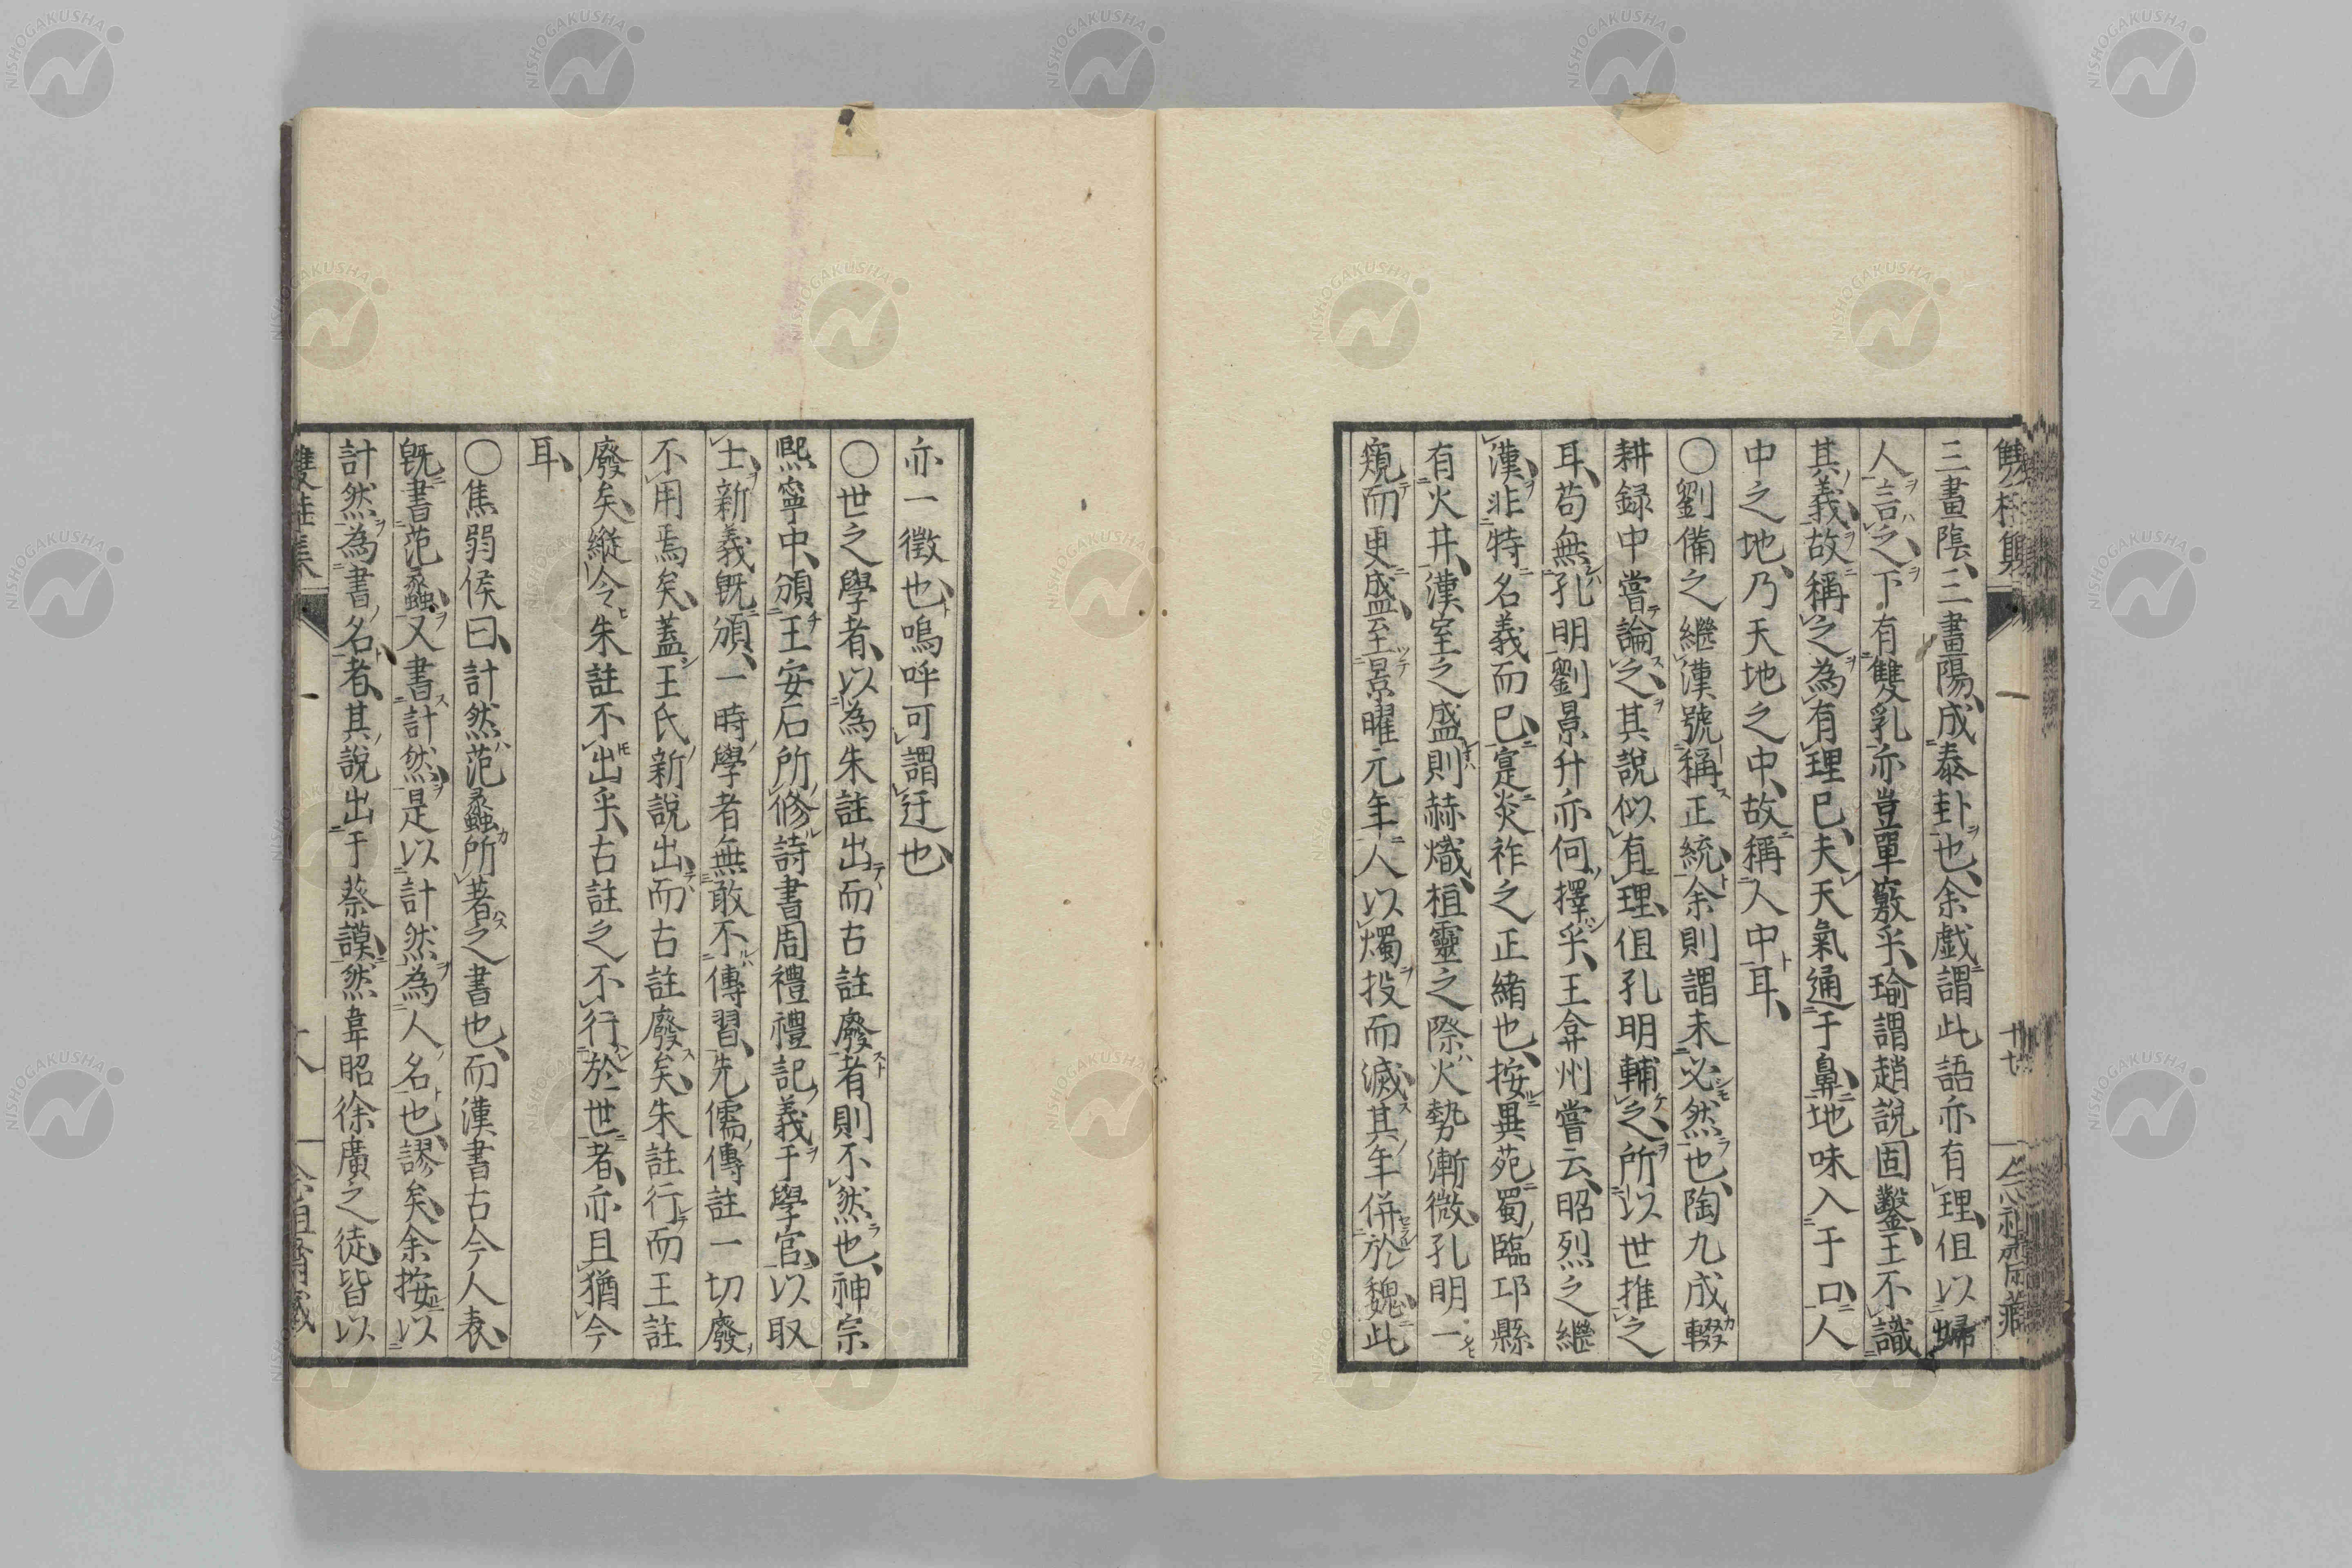 三畫陰、三畫陽、成泰卦也、余戲謂此語亦有理、但以婦
人言之、下有雙乳亦豈單竅乎、瑜謂趙說固鑿、王不識
其義、故稱之為有理已、夫天氣通于鼻、地味入于口、人
中之地、乃天地之中、故稱人中耳、
〇劉備之繼漢號稱正統、余則謂未必然也、陶九成輟
耕録中嘗論之、其說似有理、但孔明輔之、所以世推之
耳、苟無孔明劉景升亦何擇乎、王弇州嘗云、昭烈之繼
漢、非特名義而已、寔炎祚之正緒也、按異苑蜀臨邛縣
有火井、漢室之盛則赫熾、桓靈之際火勢漸微、孔明一
窺而更盛、至景曜元年人以燭投而滅、其年併於魏、此
亦一徵也、嗚呼可謂迂也、
〇世之學者、以為朱註出而古註廢者則不然也、神宗
熙寧中、頒王安石所修詩書周禮禮記義于學官、以取
士、新義既頒、一時學者無敢不傳習、先儒傳註一切廢
不用焉矣、蓋王氏新說出、而古註廢矣、朱註行而王註
廢矣、縱令朱註不出乎、古註之不行於世者、亦且猶今
耳、
〇焦弱侯曰、計然范蠡所著之書也、而漢書古今人表、
既書范蠡、又書計然、是以計然為人名也、謬矣、余按以
計然為書名者、其說出于蔡謨、然韋昭徐廣之徒、皆以
NISHOGAKUSHA